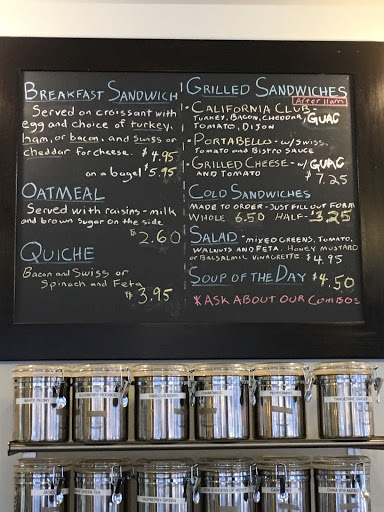 BREAKFAST SANDWICH
Served on croissant with
egg and choice of turkey,
ham, or bacon, and swiss or
cheddar for cheese. $4.95
on a bagel $5.95
OATMEAL
Served with raisins - milk
and brown sugar on the side
$2.60
QUICHE
Bacon and Swiss or
Spinach and Feta
$3.95
GRILLED SANDWICHES
After 11am
• CALIFORNIA CLUB -
TURKEY, BACON, CHEDDAR, GUAC
TOMATO, DIJON
• PORTABELLO - w/ SWISS,
TOMATO AND BISTRO SAUCE
• GRILLED CHEESE - w/ GUAC
AND TOMATO
$7.25
COLD SANDWICHES
MADE TO ORDER - JUST FILL OUT FORM
WHOLE 6.50 HALF - 3.25
SALAD - MIXED GREENS, TOMATO,
WALNUTS AND FETA. HONEY MUSTARD
OR BALSALMIC VINAGRETTE. $4.95
SOUP OF THE DAY $4.50
*ASK ABOUT OUR COMBOS